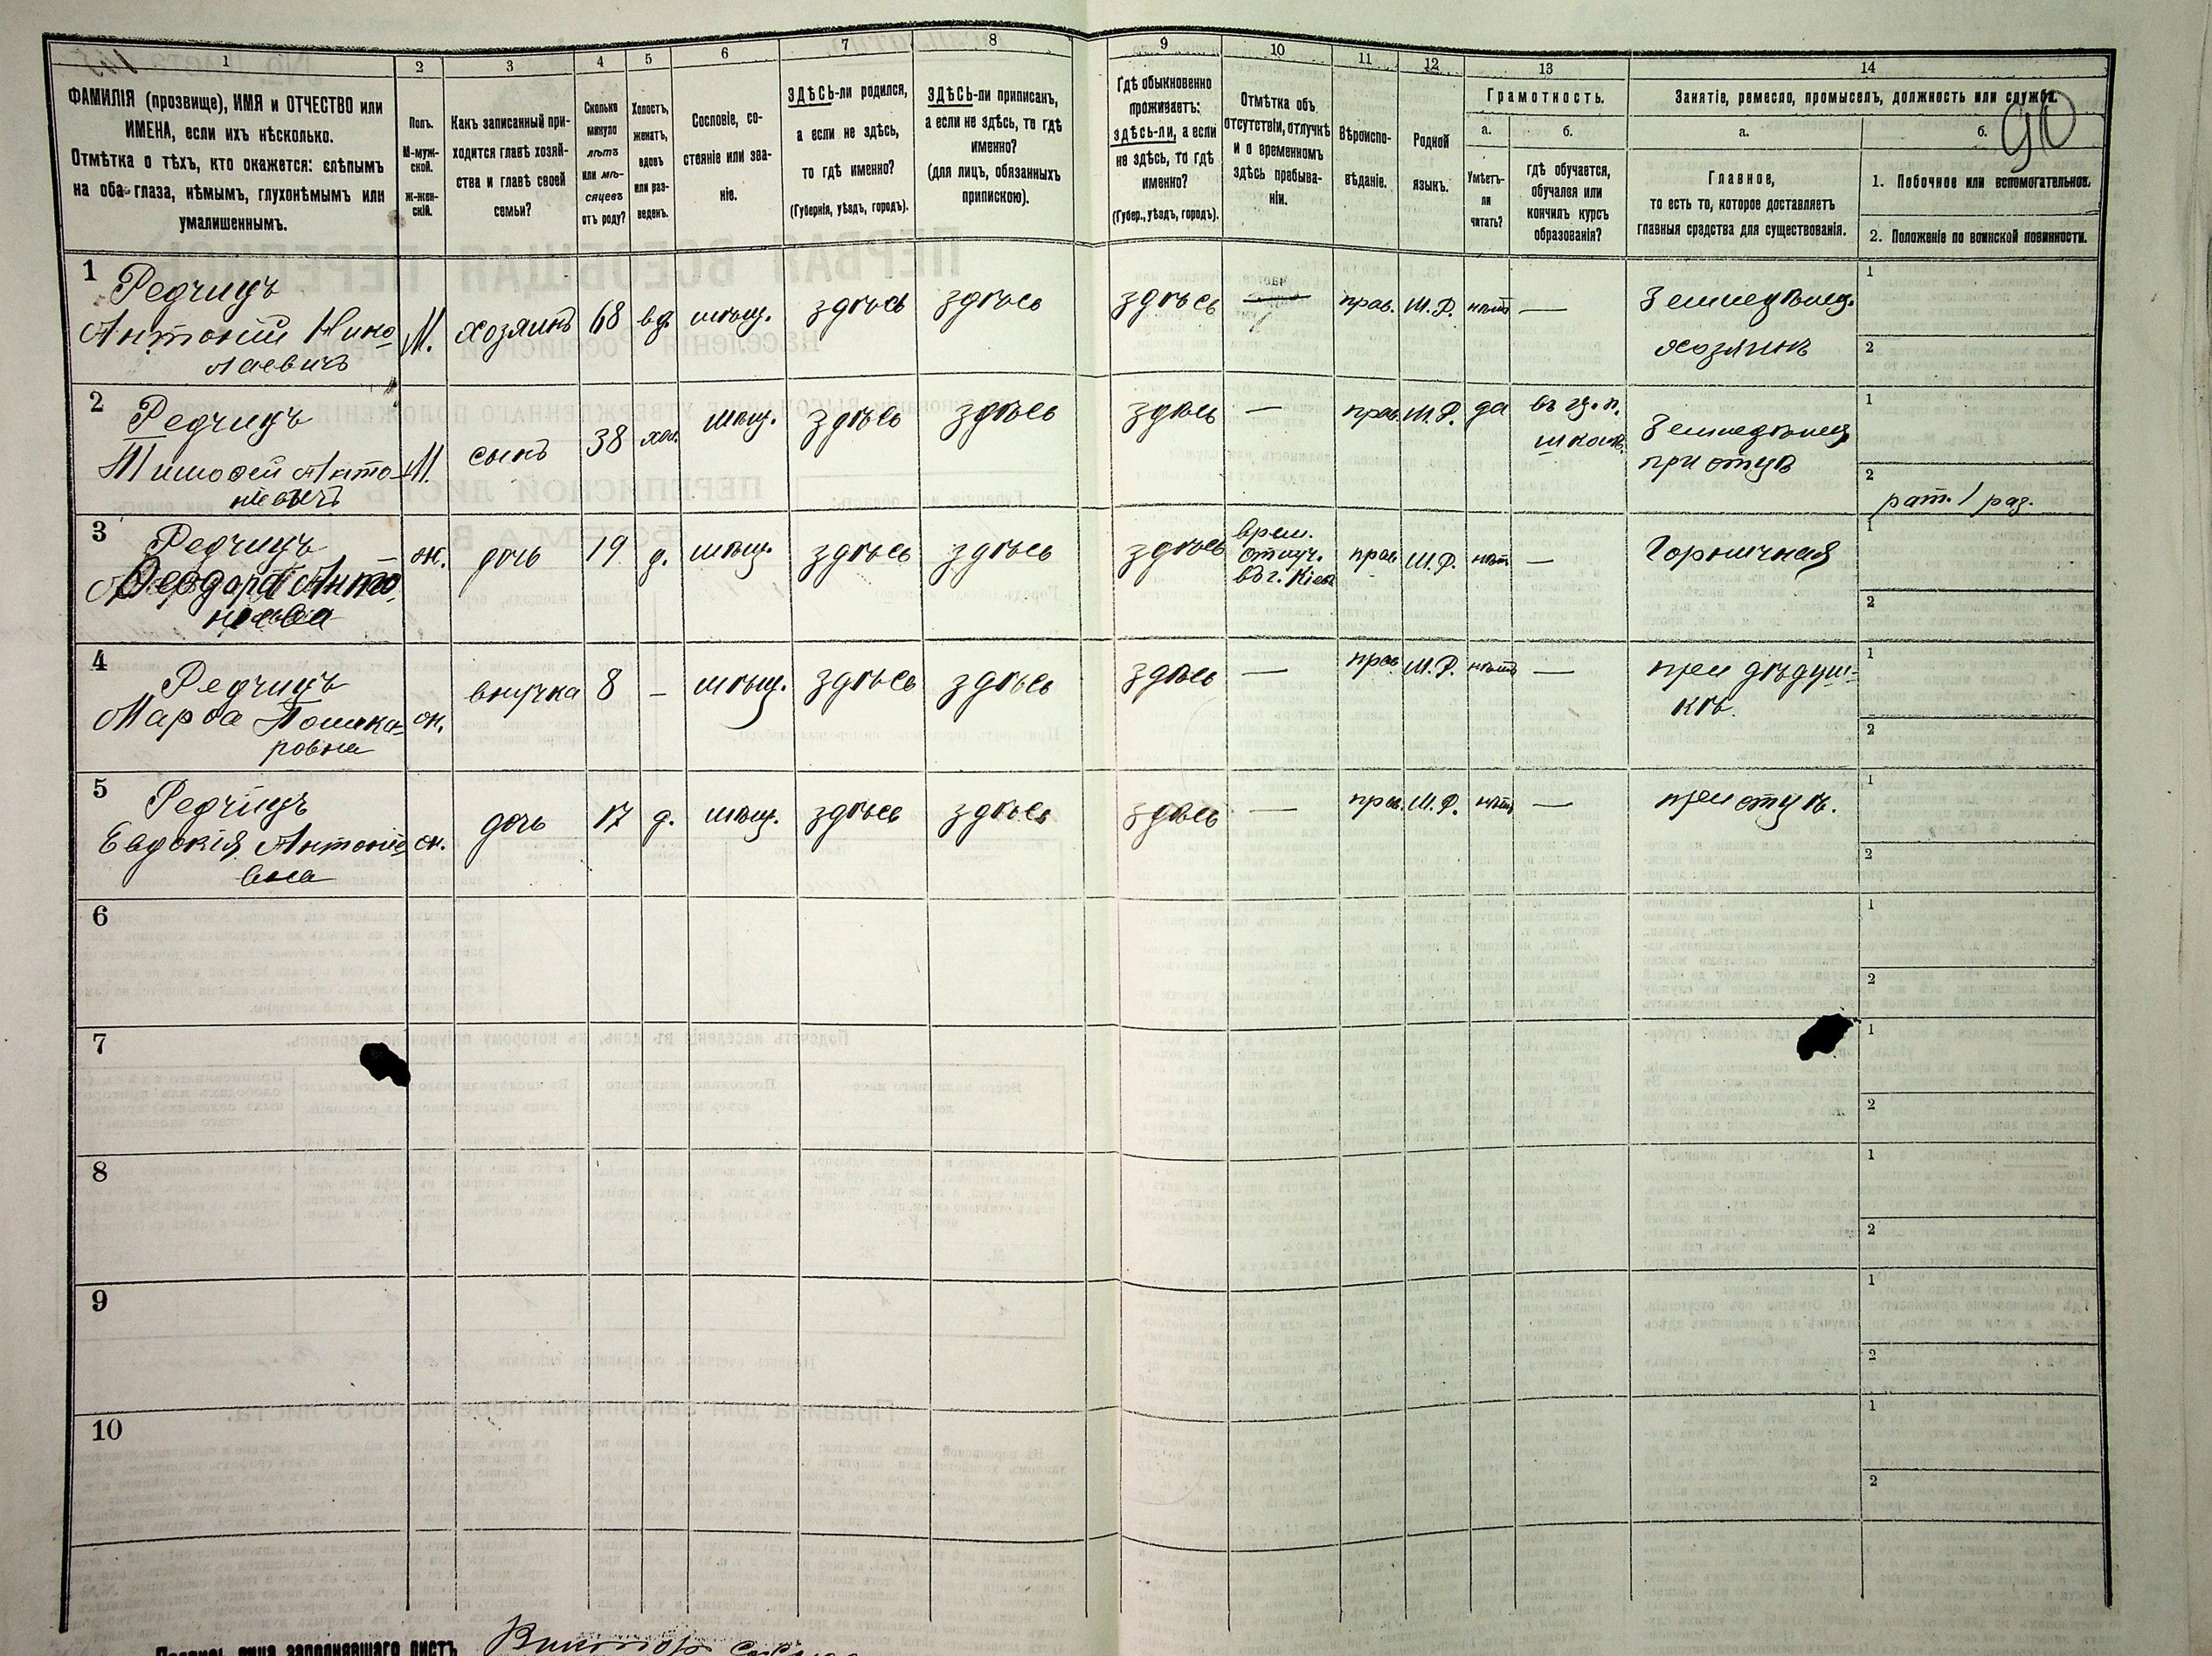 1
2
3
4
5
6
7
8
9
10
11
12
13
14
ФАМИЛІЯ (прозвище), ИМЯ и ОТЧЕСТВО или
ИМЕНА, если ихъ нѣсколько.
Отмѣтка о тѣхъ, кто окажется: слѣпымъ
на оба глаза, нѣмымъ, глухонѣмымъ или
умалишеннымъ.
Полъ.
М-муж-
ской.
ж-жен-
скій.
Какъ записанный при-
ходится главѣ хозяй-
ства и главѣ своей
семьи?
Сколько
минуло
лѣтъ
или мѣ-
сяцевъ
отъ роду?
Холостъ,
женатъ,
вдовъ
или раз-
веденъ.
Сословіе, со-
стояніе или зва-
ніе.
ЗДѢСЬ-ли родился,
а если не здѣсь,
то гдѣ именно?
(Губернія, уѣздъ, городъ).
ЗДѢСЬ-ли приписанъ,
а если не здѣсь, то гдѣ
именно?
(для лицъ, обязанныхъ
припискою).
Гдѣ обыкновенно
проживаетъ:
здѣсь-ли, а если
не здѣсь, то гдѣ
именно?
(Губер., уѣздъ, городъ).
Отмѣтка объ
отсутствіи, отлучкѣ
и о временномъ
здѣсь пребыва-
ніи.
Вѣроиспо-
вѣданіе.
Родной
языкъ.
Грамотность.
а.
б.
Умѣетъ-
ли
читать?
гдѣ обучается,
обучался или
кончилъ курсъ
образованія?
Занятіе, ремесло, промыселъ, должность или служба.
90
а.
б.
Главное,
то есть то, которое доставляетъ
главныя средства для существованія.
1. Побочное или вспомогательное.
2. Положеніе по воинской повинности.
1
Редчицъ
Антоній Нико
лаевичъ
М.
хозяинъ
68
вд.
мѣщ.
здѣсь
здѣсь
здѣсь
—
прав.
М.Р.
нѣтъ
—
Земледѣлец.
хозяинъ
1
2
2
Редчицъ
Тимофей Анто
ніевичъ
М.
сынъ
38
хол.
мѣщ.
здѣсь
здѣсь
здѣсь
—
прав.
М.Р.
да
въ ц.п.
школѣ
Земледѣлец
при отцѣ
1
2
рат. 1 раз.
3
Редчицъ
Анто
ж.
дочь
19
д.
мѣщ.
здѣсь
здѣсь
здѣсь
врем.
отлуч.
въ г. Кіевъ
прав
М.Р.
нѣтъ
—
Горничная
1
2
4
Редчицъ
Марфа
ровна
ж.
внучка
8
—
мѣщ.
здѣсь
здѣсь
здѣсь
—
прав
М.Р.
нѣтъ
—
при дѣдуш-
кѣ.
1
2
5
Редчицъ
Евдокія Антоніе
вна
ж.
дочь
17
д.
мѣщ.
здѣсь
здѣсь
здѣсь
—
прав.
М.Р.
нѣтъ
—
при отцѣ.
1
2
6
1
2
7
1
2
8
1
2
9
1
2
10
1
2
Подпись лица заполнявшаго листъ